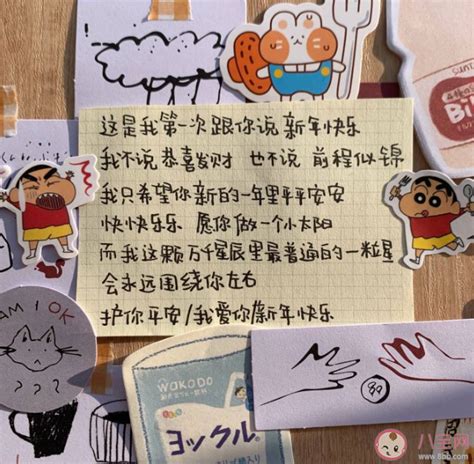 这是我第一次跟你说 新年快乐
我不说 恭喜发财 也不说 前程似锦
我只希望你新的一年里平平安安
快快乐乐 愿你做一个小太阳
而我这颗万千星辰里最普通的一粒星
会永远围绕你左右
护你平安/我爱你/新年快乐
AM I OK
???
WAKODO
ヨックル
Bi
八宝网
www.8bb.com